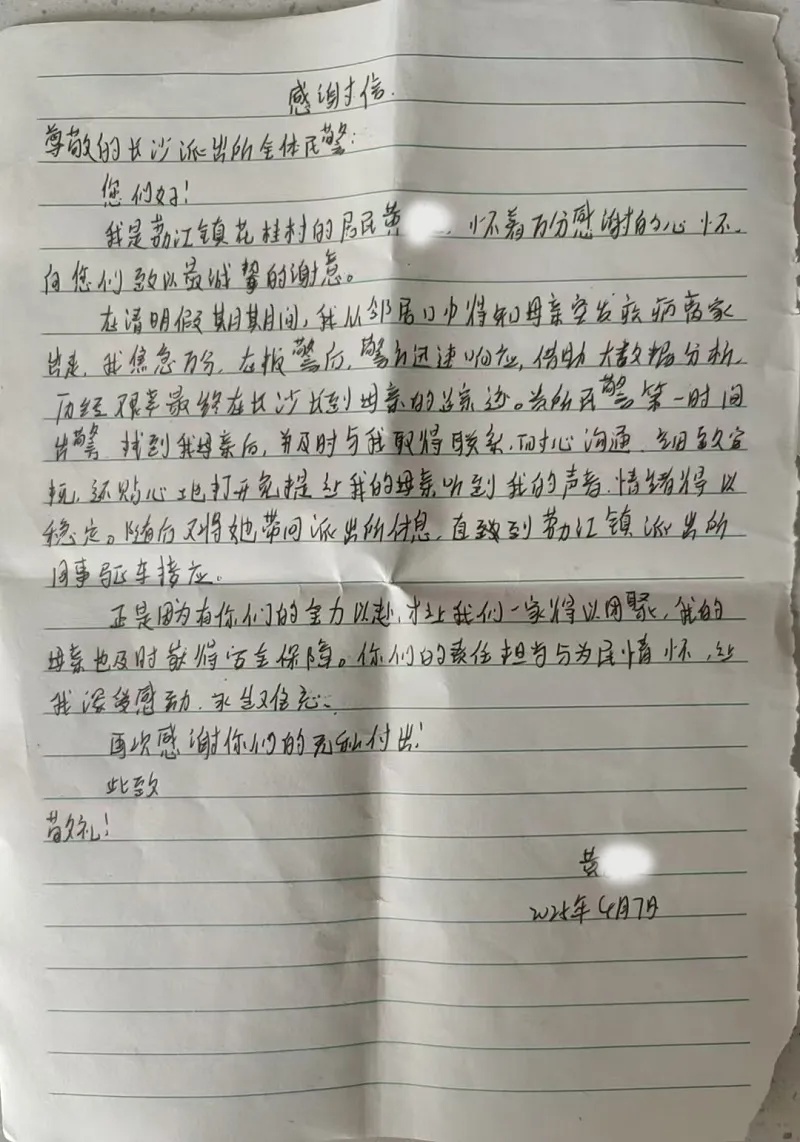 感谢信.
尊敬的长沙派出所全体民警:
您们好!
我是荔江镇花桂村的居民黄 , 怀着万分感谢的心怀,
向您们致以最诚挚的谢意。
在清明假期其间,我从邻居口中得知母亲突发疾病离家
出走,我焦急万分,在报警后,警方迅速响应,借助大数据分析,
历经艰辛最终在长沙找到母亲的踪迹。贵所民警第一时间
出警 找到我母亲后,并及时与我取得联系,耐心沟通,细致安
抚,还贴心地打开免提让我的母亲听到我的声音,情绪得以
稳定。随后又将她带回派出所休息,直致到荔江镇派出所
同事驱车接应。
正是因为有你们的全力以赴,才让我们一家得以团聚,我的
母亲也及时获得安全保障。你们的责任担当与为民情怀,让
我深受感动,永生难忘。
再次感谢你们的无私付出!
此致
敬礼!
黄
2025年4月7日